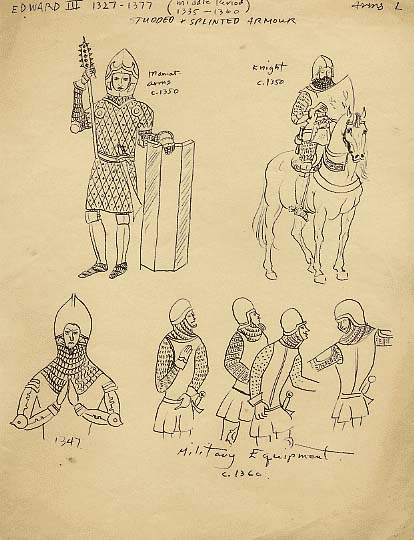 EDWARD III 1327-1377 (Middle Period)
(1335-1360)
STUDDED & SPLINTED ARMOUR
Arms L
Man at
arms
c.1350
Knight
c.1350
1347
Military Equipment.
c.1360